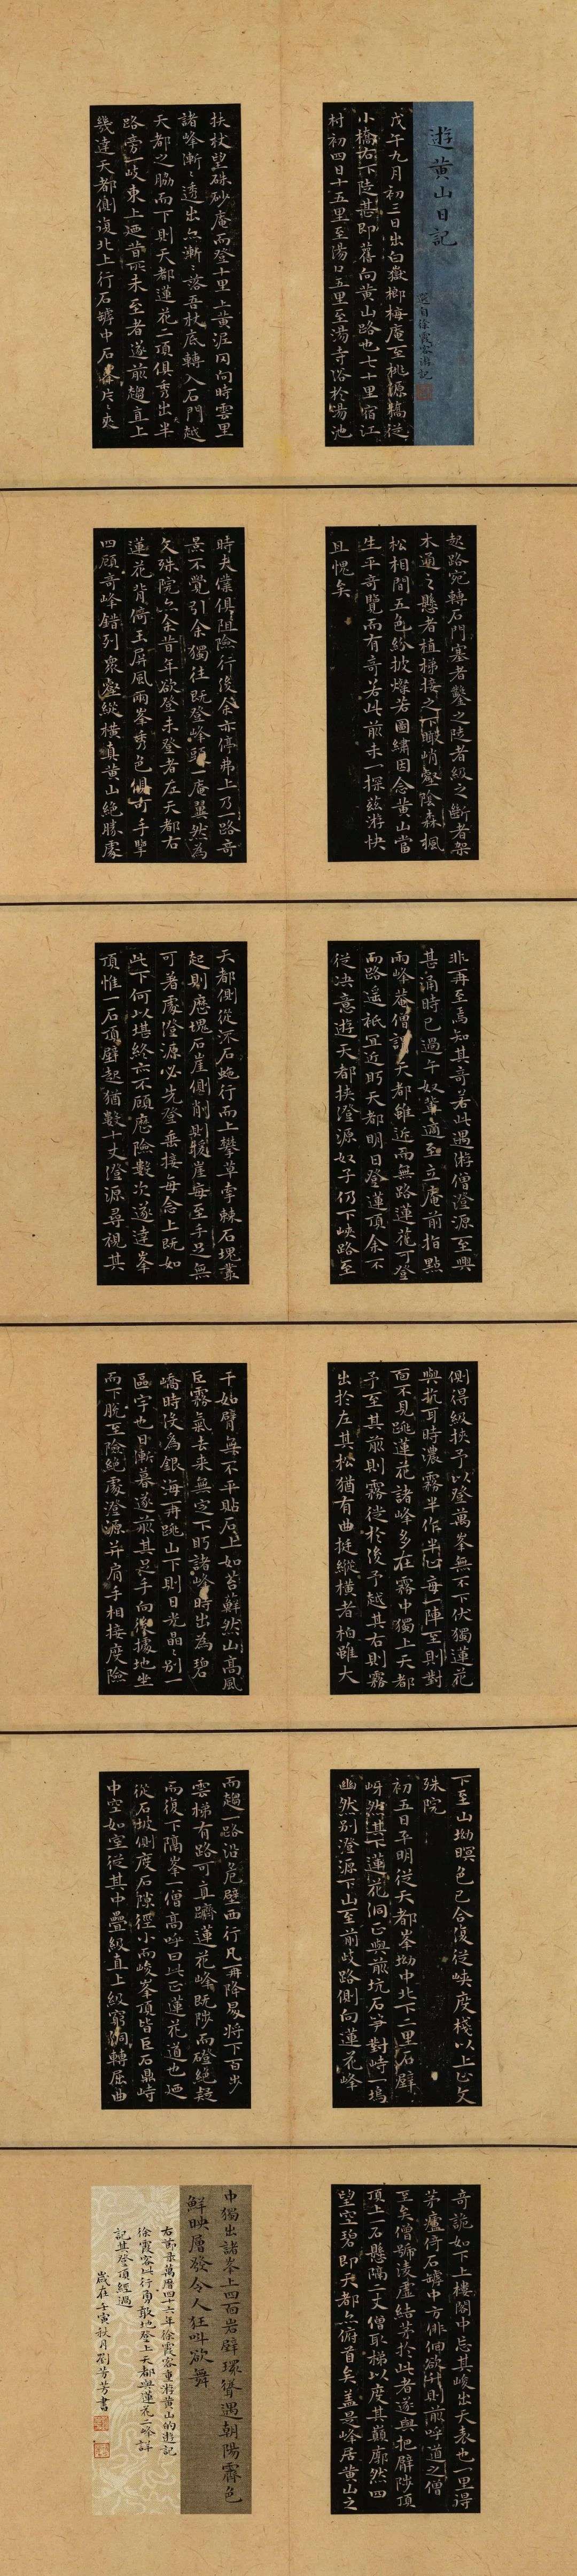 遊黃山日記
選自徐霞客游記
戊午九月初三日出白嶽榔梅庵至桃源橋從
小橋右下陡甚即舊向黃山路也七十里宿江
村初四日十五里至湯口五里至湯寺浴於湯池
扶杖望硃砂庵而登十里上黃泥岡向時雲里
諸峰漸〻透出亦漸〻落吾杖底轉入石門越
天都之脇而下則天都蓮花二頂俱秀出半
路旁一岐東上廼昔所未至者遂前趨直上
幾達天都側復北上行石罅中石峰片〻夾
起路宛轉石門塞者鑿之陡者級之斷者架
木通之懸者植梯接之下瞰峭壑陰森楓
松相間五色紛披燦若圖繡因念黃山當
生平奇覽而有奇若此前未一探茲游快
且愧矣
時夫僕俱阻險行後余亦停弗上乃一路奇
景不覺引余獨往既登峰頭一庵翼然為
文殊院亦余昔年欲登未登者左天都右
蓮花背倚玉屏風兩峯秀色俱可手擥
四顧奇峰錯列衆壑縱橫真黃山絕勝處
非再至焉知其奇若此遇游僧澄源至興
甚涌時已過午奴輩適至立庵前指點
兩峰菴僧謂天都雖近而無路蓮花可登
而路遥祇宜近盻天都明日登蓮頂余不
從决意遊天都挾澄源奴子仍下峽路至
天都側從流石蛇行而上攀草牽棘石塊叢
起則歷塊石崖側削則援崖每至手足無
可著處澄源必先登垂接每念上既如
此下何以堪終亦不顧歷險數次遂達峯
頂惟一石頂壁起猶數十丈澄源尋視其
側得級挾予以登萬峯無不下伏獨蓮花
與抗耳時濃霧半作半止每一陣至則對
面不見眺蓮花諸峰多在霧中獨上天都
予至其前則霧徙於後予越其右則霧
出於左其松猶有曲挺縱橫者柏雖大
干如臂無不平貼石上如苔蘚然山高風
巨霧氣去來無定下盻諸峰時出為碧
嶠時没為銀海再眺山下則日光晶〻別一
區宇也日漸暮遂前其足手向後據地坐
而下脫至險絕處澄源并肩手相接度險
下至山坳暝色已合復從峽度棧以上止文
殊院
初五日平明從天都峯坳中北下二里石壁
岈然其下蓮花洞正與前坑石笋對峙一塢
幽然別澄源下山至前岐路側向蓮花峰
而趨一路沿危壁西行凡再降昜將下百步
雲梯有路可直躋蓮花峰既陟而磴絕疑
而復下隔峯一僧高呼曰此正蓮花道也廼
從石坡側度石隙徑小而峻峯頂皆巨石鼎峙
中空如室從其中疊級直上級窮洞轉屈曲
奇詭如下上樓閣中忘其峻出天表也一里得
茅廬倚石罅中方俳佪欲升則前呼道之僧
至矣僧號凌虛結茅於此者遂與把臂陟頂
頂上一石懸隔二丈僧取梯以度其巔廓然四
望空碧即天都亦俯首矣蓋是峰居黃山之
中獨出諸峯上四面岩壁環聳遇朝陽霽色
鮮映層發令人狂叫欲舞
右節录萬曆四十六年徐霞客重游黃山的遊記
徐霞客此行勇敢地登上天都與蓮花二峰詳
記其登頂經過
歲在壬寅秋月劉芳芳書